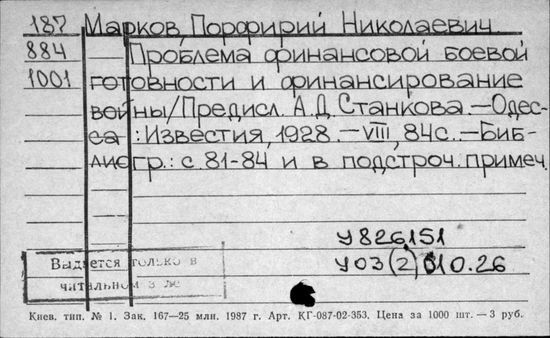 187 Марков, Порфирий Николаевич
884 Проблема финансовой боевой
1001 готовности и финансирование
войны/Предисл. А.Д. Станкова.—Одес-
са: Известия, 1928.—VIII, 84с.—Биб-
лиогр.: с. 81-84 и в подстроч. примеч.
У826,151
У03(2)610.26
Выдается только в
читальном з ле
Киев. тип. № 1. Зак. 167—25 млн. 1987 г. Арт. КГ-087-02-353. Цена за 1000 шт. — 3 руб.